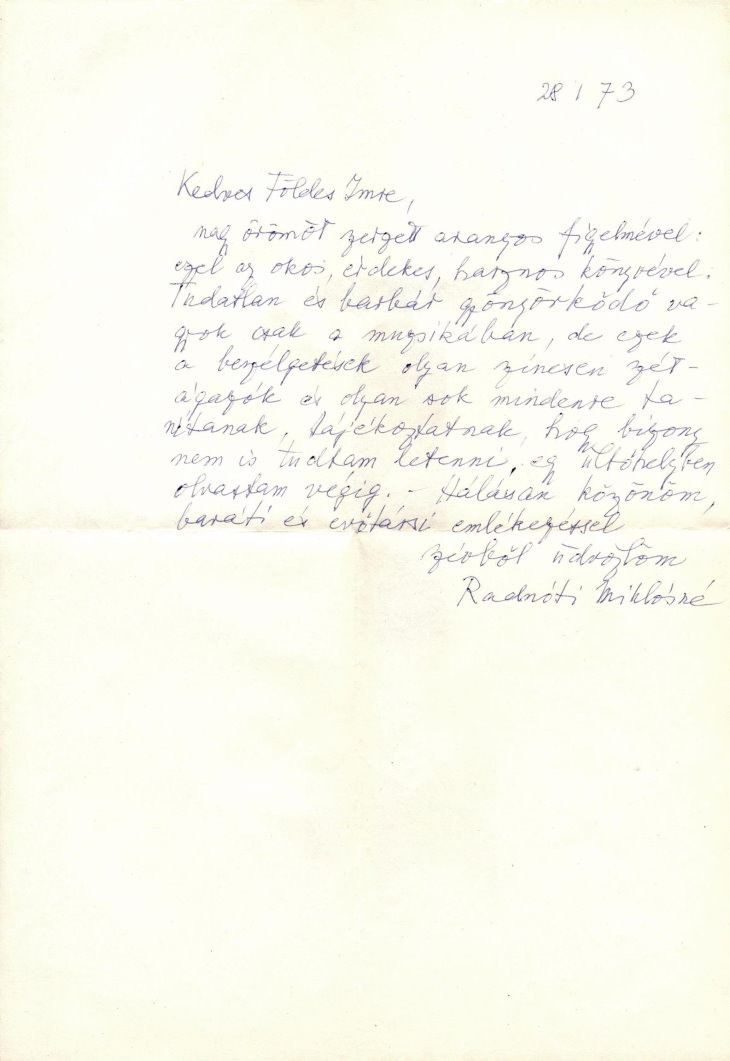 28 I 73
Kedves Földes Imre,
nagy örömöt szerzett aranyos figyelmével:
ezzel az okos, érdekes, hasznos könyvével.
Tudatlan és barbár gyönyörködő va-
gyok csak a muzsikában, de ezek
a beszélgetések olyan színesen szét-
ágazók és olyan sok mindenre ta-
nítanak, tájékoztatnak, hogy bizony
nem is tudtam letenni, egy ültőhelyben
olvastam végig. – Hálásan köszönöm,
baráti és emlékezéssel
szívből üdvözlöm
Radnóti Miklósné